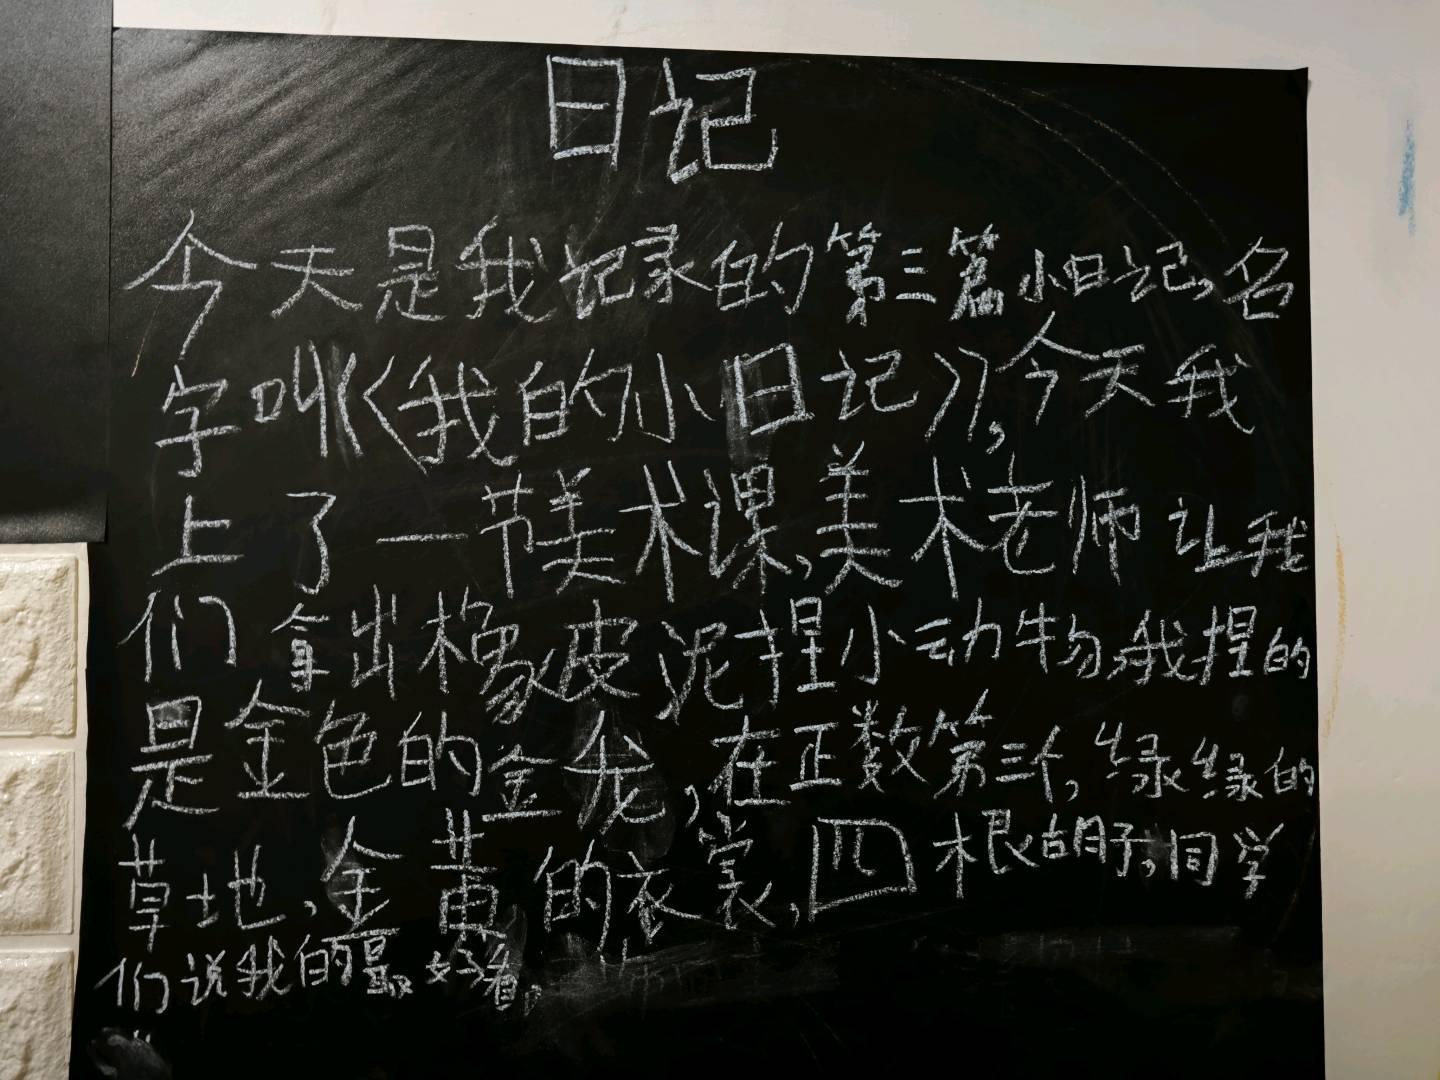 日记
今天是我记录的第三篇小日记,名
字叫《我的小日记》,今天我
上了一节美术课,美术老师让我
们拿出橡皮泥捏小动物,我捏的
是金色的金龙,在正数第三个,绿绿的
草地,金黄的衣裳,四根胡子,同学
们说我的最好看。